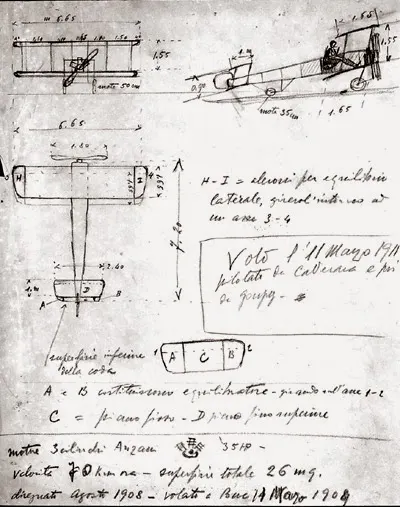 m 6.65
1.55
1.55
1.55
1 m
0.90
ruote 50 cm
ruote 35 cm
1.65
6.65
1.80
H
H
7.20
H - I = aleroni per equilibrio
laterale, girevol' intorno ad
un asse 3-4
Volò l'11 Marzo 1911
pilotato da e poi
da
2.60
1 m
D
A B
superficie inferiore
della coda
1 A C B 2
A e B costituiscono equilibratore - girando sull'asse 1-2
C = piano fisso - D piano fisso superiore
motore 3 cilindri Anzani 35 HP -
velocità 70 Km ora - superficie totale 26 mq.
disegnato Agosto 1908 - volato a Buc Marzo 1909